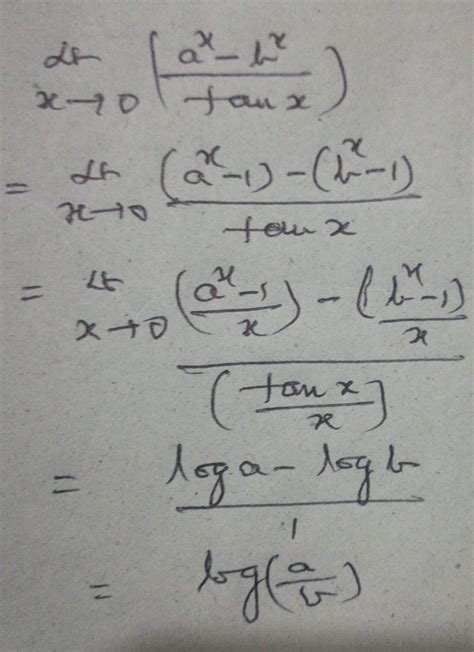 Lt x→0 (a^x - b^x / tan x)
= Lt x→0 (a^x - 1) - (b^x - 1) / tan x
= Lt x→0 (a^x - 1 / x) - (b^x - 1 / x) / (tan x / x)
= log a - log b / 1
= log(a/b)